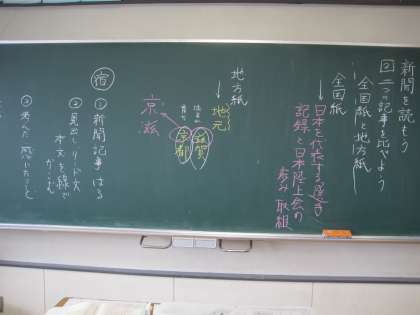 新聞を読もう
② 二つの記事を比べよう
全国紙と地方紙
全国紙
↓
日本を代表する選手
記録と日本陸上会の
歩み 取組
地方紙
↓
地元
滋賀
京都
京滋
宿
① 新聞記事はる
② 見出し リード文
本文を線で
かこむ
③ 考えた 感じたこと